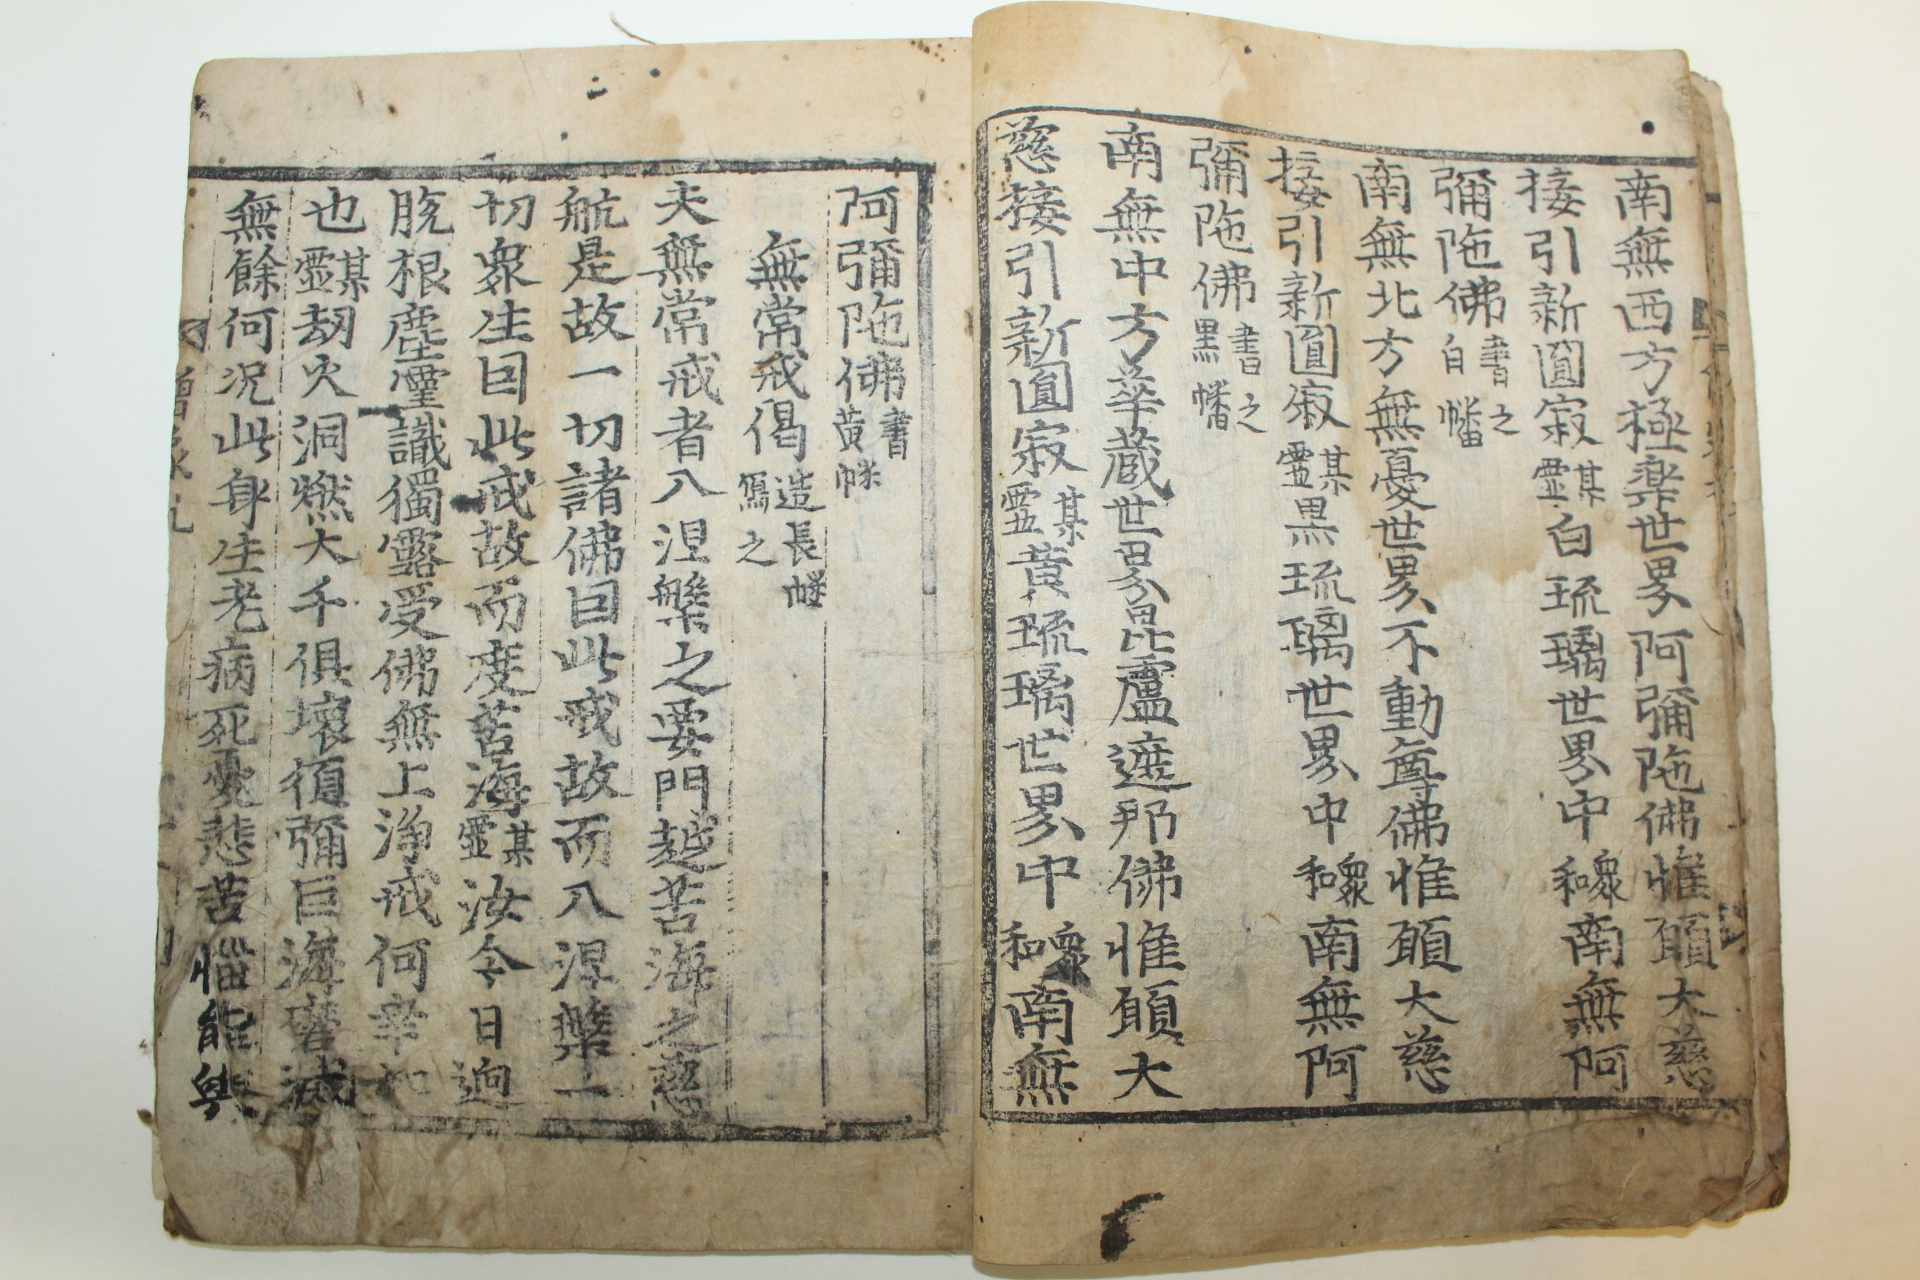 南無西方極樂世界阿彌陁佛惟願大慈
接引新圓寂某靈白琉璃世界中和衆南無阿
彌陁佛書之白幡
南無北方無憂世界不動尊佛惟願大慈
接引新圓寂某靈黑琉璃世界中和衆南無阿
彌陁佛書之黑幡
南無中方華藏世界毘盧遮那佛惟願大
慈接引新圓寂某靈黃琉璃世界中和衆南無
阿彌陁佛書黃幡
無常戒偈造長幡寫之
夫無常戒者入涅槃之要門越苦海之慈
航是故一切諸佛因此戒故而入涅槃一
切衆生因此戒故而度苦海某靈汝今日逈
脫根塵靈識獨露受佛無上淨戒何幸如
也某靈劫火洞燃大千俱壞須彌巨海磨滅
無餘何況此身生老病死憂悲苦惱能與